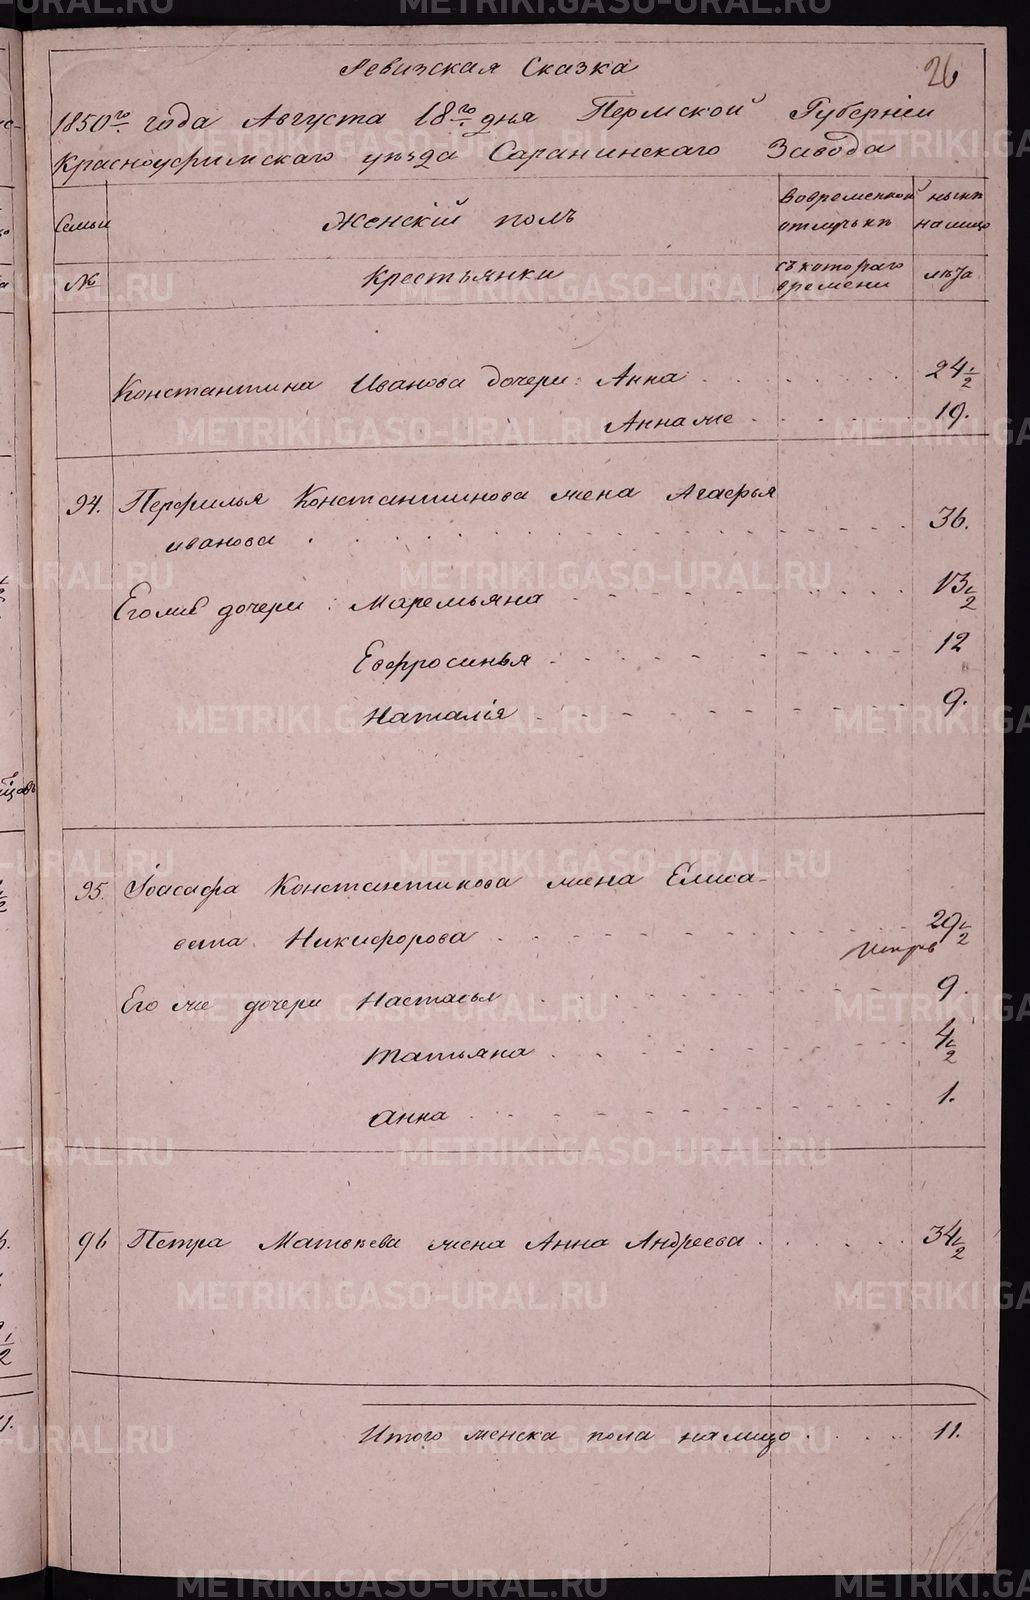 26
Ревизская Сказка
1850го. года Августа 18го. дня Пермской Губерніи
Красноуфимскаго уѣзда Саранинскаго Завода
Семьи
Женскій полъ
Вовременной отлучькѣ
нынѣ налицо
№
Крестьянки
съ котораго времени
лѣта
Константина Иванова дочери: Анна . . . . . . 24 1/2
Анна же . . . . . 19.
94. Перфилья Константинова жена Агафья
иванова . . . . . . . . . . 36.
Его же дочери: Маремьяна . . . . . . . . 13 1/2
Евфросинья . . . . . . . . 12
Наталія . . . . . . . . 9.
95. Іоасафа Константинова жена Елиса-
вета Никифорова . . . . . . . . 29 1/2
Его же дочери Настасья . . . . . . . . 9.
Татьяна . . . . . . . . 4 1/2
Анна . . . . . . . . 1.
96 Петра Матвѣева жена Анна Андреева . . . . . . 34 1/2
Итого женска пола налицо . . . . . 11.
METRIKI.GASO-URAL.RU